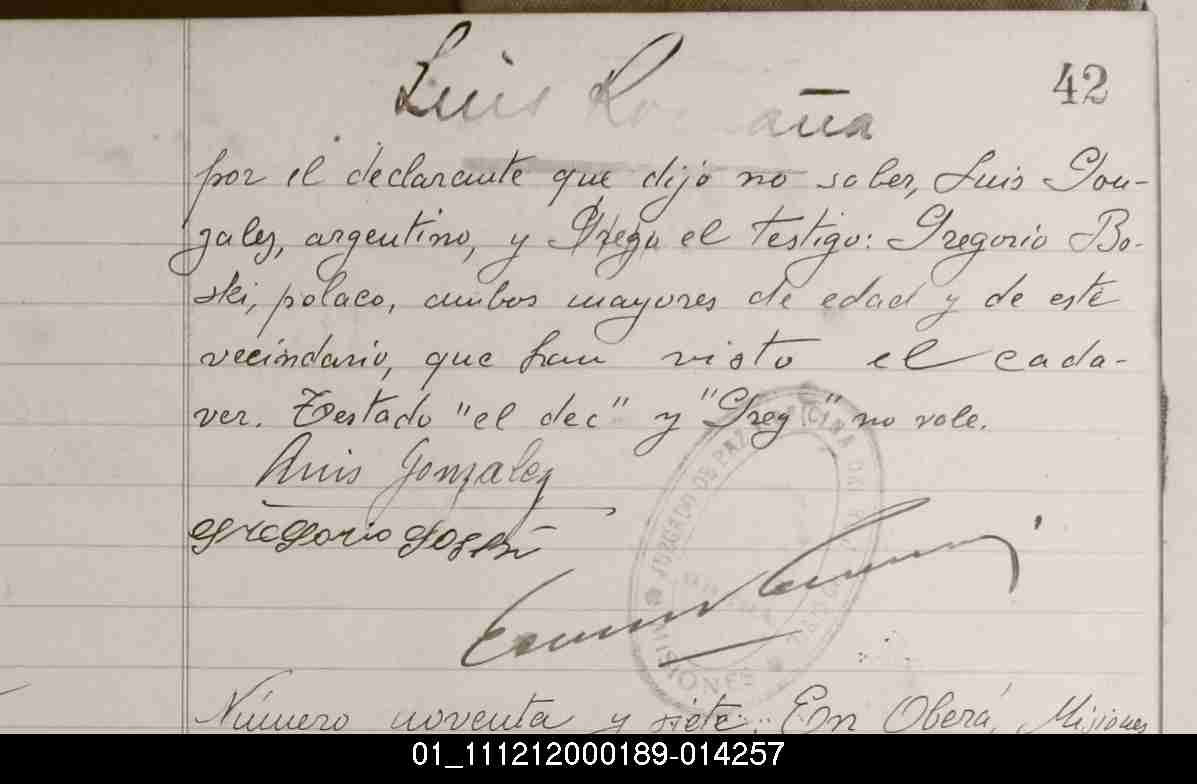 42
Luis Romaña
por el declarante que dijo no saber, Luis Gon-
zalez, argentino, y Greg el testigo: Gregorio Bo-
ski, polaco, ambos mayores de edad y de este
vecindario, que han visto el cada-
ver. Testado "el dec" y "Greg" no vale.
Luis Gonzalez
Gregorio
JUZGADO DE PAZ
MISIONES
Número noventa y siete: En Oberá, Misiones
01_111212000189-014257